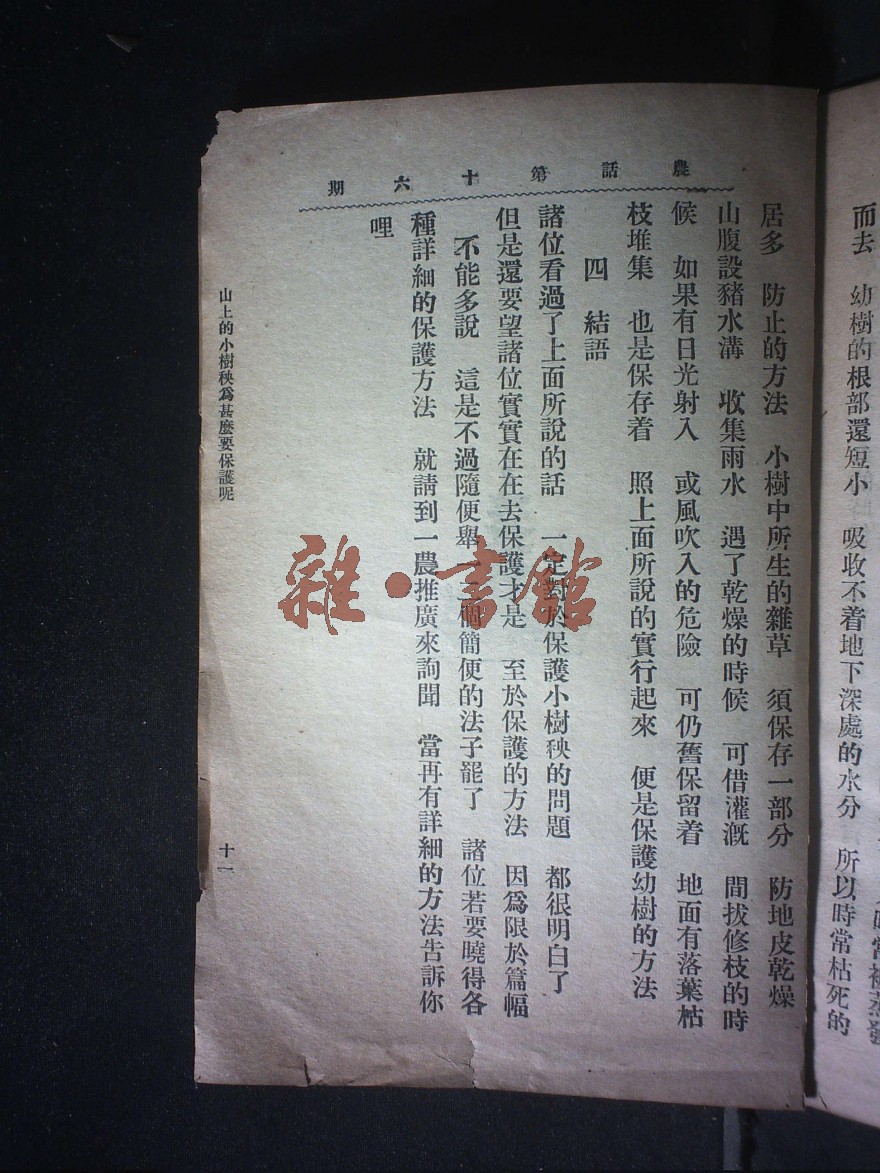 而去　幼樹的根部還短小　吸收不着地下深處的水分　所以時常枯死的
農話第十六期
居多　防止的方法　小樹中所生的雜草　須保存一部分　防地皮乾燥
山腹設豬水溝　收集雨水　遇了乾燥的時候　可借灌漑　間拔修枝的時
候　如果有日光射入　或風吹入的危險　可仍舊保留着　地面有落葉枯
枝堆集　也是保存着　照上面所說的實行起來　便是保護幼樹的方法
四　結語
諸位看過了上面所說的話　一定對於保護小樹秧的問題　都很明白了
但是還要望諸位實實在在去保護才是　至於保護的方法　因爲限於篇幅
不能多說　這是不過隨便舉一二個簡便的法子罷了　諸位若要曉得各
種詳細的保護方法　就請到一農推廣來詢聞　當再有詳細的方法告訴你
哩
山上的小樹秧爲甚麼要保護呢
十一
雜·書館